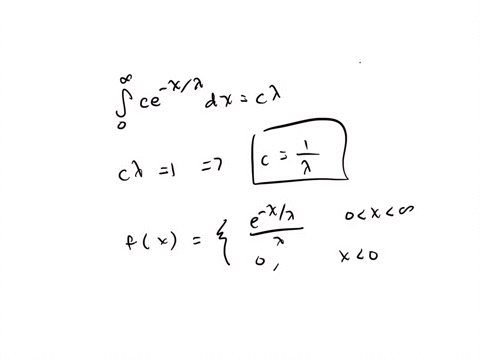 ∫₀^∞ ce^{-x/λ} dx = cλ
cλ = 1 => c = 1/λ
f(x) = { e^{-x/λ}/λ 0<x<∞
0, x<0